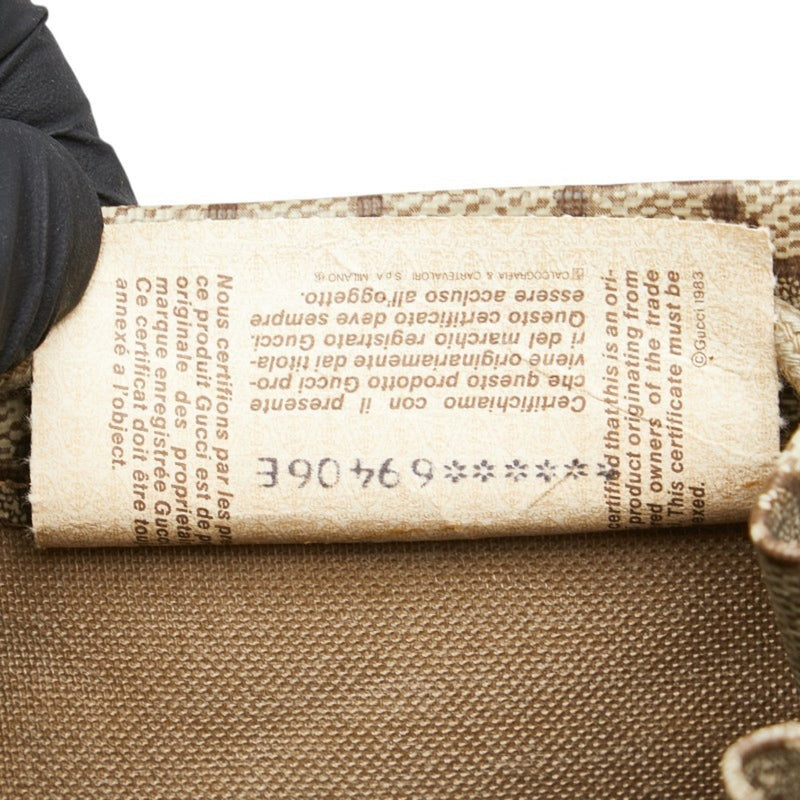 ******69406E
Certifichiamo con il presente
che questo prodotto Gucci pro-
viene originariamente dai titola-
ri del marchio registrato Gucci.
Questo certificato deve sempre
essere accluso all'oggetto.
CALCOGRAFIA & CARTEVALORI S.p.A. MILANO
Nous certifions par les
ce produit Gucci est de
originale des
marque enregistrée Gucci
Ce certificat doit être
annexé a l'object.
certified that this is an ori-
product originating from
owners of the trade
This certificate must be
©Gucci 1983